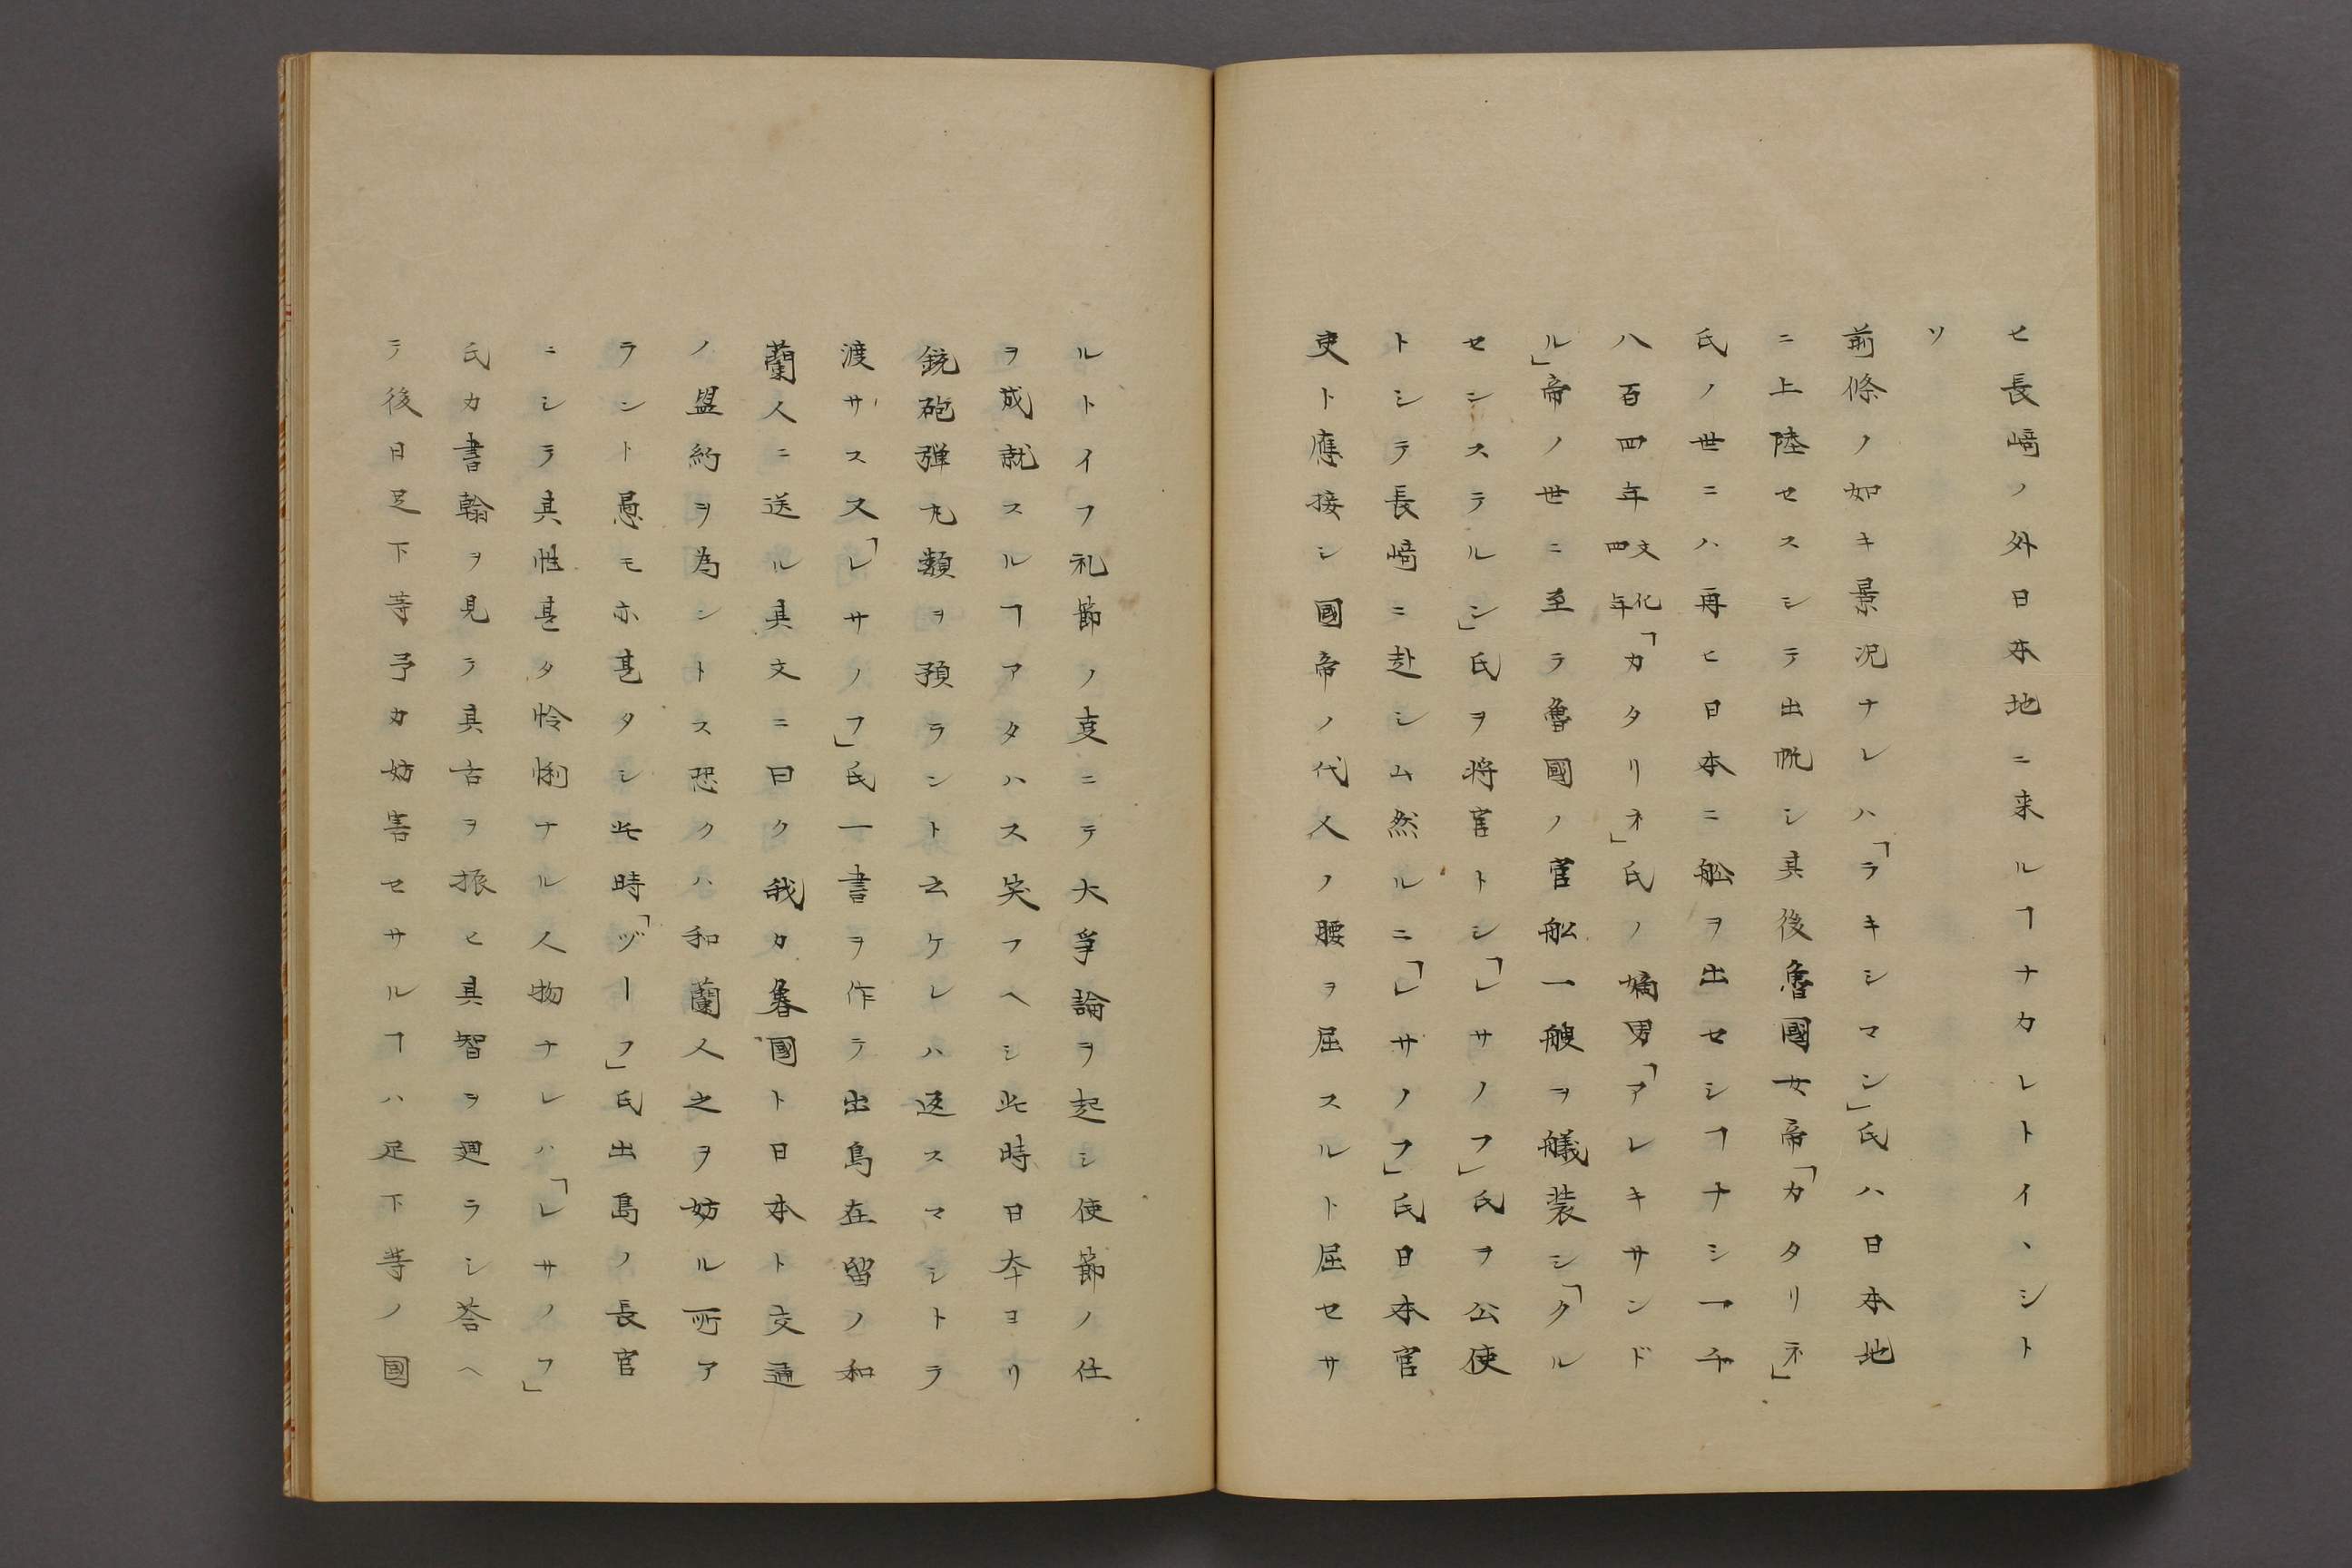 セ長﨑ノ外日本地ニ来ルヿナカレトイヽシト
ソ
前條ノ如キ景況ナレハ「ラキシマン」氏ハ日本地
ニ上陸セスシテ出帆シ其後魯國女帝「カタリネ」
氏ノ世ニハ再ヒ日本ニ舩ヲ出セシヿナシ一千
八百四年文化四年「カタリネ」氏ノ嫡男「アレキサンド
ル」帝ノ世ニ至ラ魯國ノ官舩一艘ヲ艤装シ「クル
センステルン」氏ヲ将官トシ「レサノフ」氏ヲ公使
トシテ長﨑ニ赴シム然ルニ「レサノフ」氏日本官
吏ト應接シ國帝ノ代人ノ腰ヲ屈スルト屈セサ
ルトイフ礼節ノ支ニテ大爭論ヲ起シ使節ノ仕
ヲ成就スルヿアタハス笑フヘシ此時日本ヨリ
銃砲弾丸類ヲ預ラント云ケレハ返スマシトラ
渡サス又「レサノフ」氏一書ヲ作テ出島在留ノ和
蘭人ニ送ル其文ニ曰ク我カ魯國ト日本ト交通
ノ盟約ヲ為シトス恐クハ和蘭人之ヲ妨ル所ア
ラント愚モ亦甚タシ此時「ヅーフ」氏出島ノ長官
ニシテ其性甚タ怜悧ナル人物ナレハ「レサノフ」
氏カ書翰ヲ見テ其舌ヲ振ヒ其智ヲ廻ラシ荅ヘ
テ後日足下等予カ妨害セサルヿハ足下等ノ國